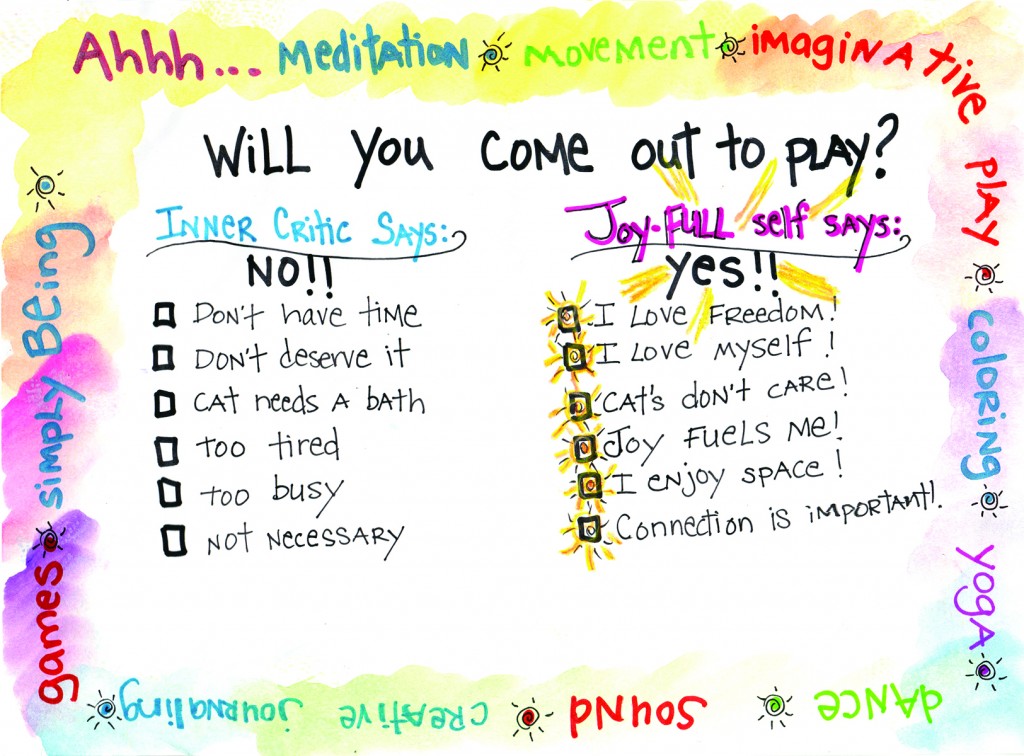 Ahhh... Meditation movement imaginAtive
play
coloring
yoga
dance
sound
creative journaling
games
simply Being
Will you come out to play?
Inner Critic Says:
NO!!
Don't have time
Don't deserve it
CAT needs A bath
too tired
too busy
Not Necessary
Joy-Full self says:
yes!!
I Love Freedom!
I Love myself!
CAt's don't CARe!
Joy Fuels Me!
I enjoy space!
Connection is important!